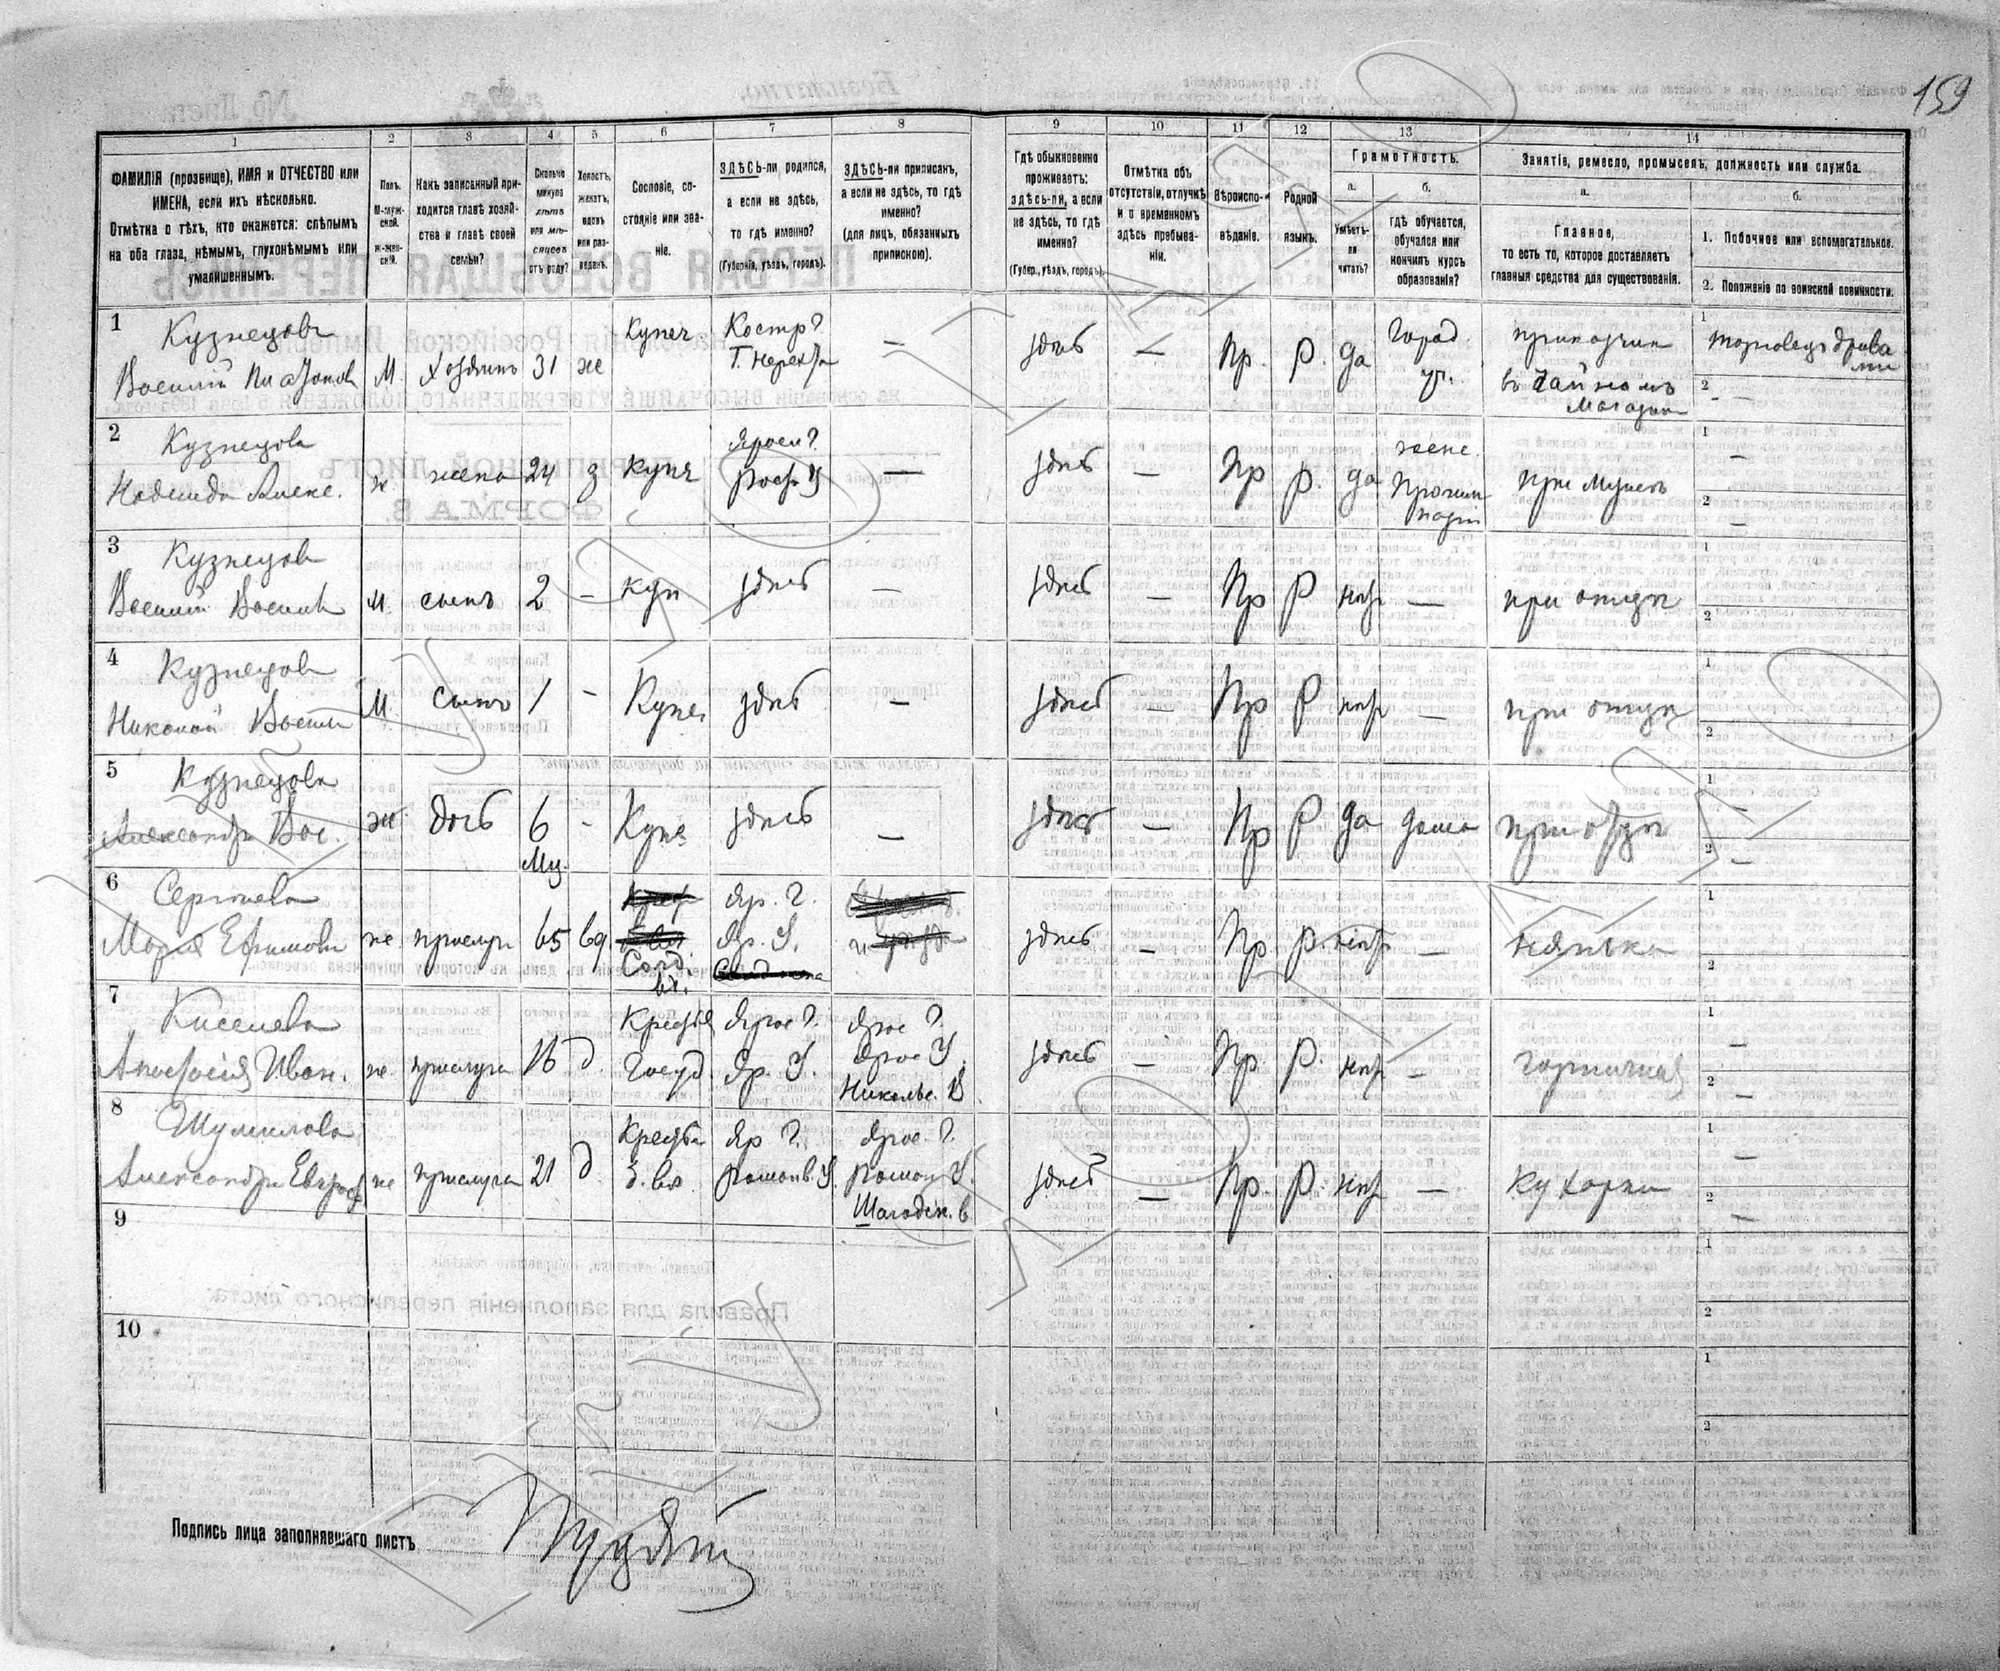 159
1 2 3 4 5 6 7 8 9 10 11 12 13 14
ФАМИЛІЯ (прозвище), ИМЯ и ОТЧЕСТВО или ИМЕНА, если ихъ нѣсколько.
Отмѣтка о тѣхъ, кто окажется: слѣпымъ на оба глаза, нѣмымъ, глухонѣмымъ или умалишеннымъ.
Полъ. М-мужской. Ж-женскій.
Какъ записанный приходится главѣ хозяйства и главѣ своей семьи?
Сколько минуло лѣтъ или мѣсяцевъ отъ роду?
Холостъ, женатъ, вдовъ или разведенъ.
Сословіе, состояніе или званіе.
ЗДѢСЬ-ли родился, а если не здѣсь, то гдѣ именно? (Губернія, уѣздъ, городъ).
ЗДѢСЬ-ли приписанъ, а если не здѣсь, то гдѣ именно? (для лицъ, обязанныхъ припискою).
Гдѣ обыкновенно проживаетъ: здѣсь-ли, а если не здѣсь, то гдѣ именно? (Губер., уѣздъ, городъ).
Отмѣтка объ отсутствіи, отлучкѣ и о временномъ здѣсь пребываніи.
Вѣроисповѣданіе.
Родной языкъ.
Грамотность.
а. Умѣетъ-ли читать?
б. гдѣ обучается, обучался или кончилъ курсъ образованія?
Занятіе, ремесло, промыселъ, должность или служба.
а. Главное, то есть то, которое доставляетъ главныя средства для существованія.
б. 1. Побочное или вспомогательное.
2. Положеніе по воинской повинности.
1 Кузнецовъ Василій Платонов М. Хозяинъ 31 же Купеч Костр г. Г. Нерехта — здѣсь — Пр. Р. да Город. уч. приказчик въ чайномъ Магазин 1 торговецъ дрова ми 2 —
2 Кузнецова Надежда Алекс. ж жена 24 з купч Яросл г Рост У — здѣсь — Пр Р. да жене. Прогим назіи при мужѣ 1 — 2 —
3 Кузнецовъ Василій Васильев М. сынъ 2 - куп здѣсь — здѣсь — Пр Р нгр — при отцѣ 1 2
4 Кузнецовъ Николай Васил М. сынъ 1 - Купе. здѣсь — здѣсь — Пр Р нгр — при отцѣ 1 2
5 Кузнецова Александра Вас. ж дочь 6 Мц. - Купе здѣсь — здѣсь — Пр Р да дома при отцѣ 1 — 2 —
6 Сергѣева Марія Ефимова же прислуг 65 вд Солд. вд. Яр. г. Яр. У. здѣсь — Пр Р. нгр — нянька 1 2
7 Киселева Анастасія Иван. же. прислуга 16 д. Крестья Госуд Ярос г. Яр. У. Ярос г. Ярос У. Никольс. В. здѣсь — Пр. Р. нгр — горничная 1 — 2 —
8 Шумилова Александра Евграф же прислуга 21 д. Крестьян Яр г. Романов. У. Ярос. г. Роман У. Шагодск. в здѣсь — Пр. Р. нгр — Кухарка 1 — 2 —
9 1 2
10 1 2
Подпись лица заполнявшаго листъ